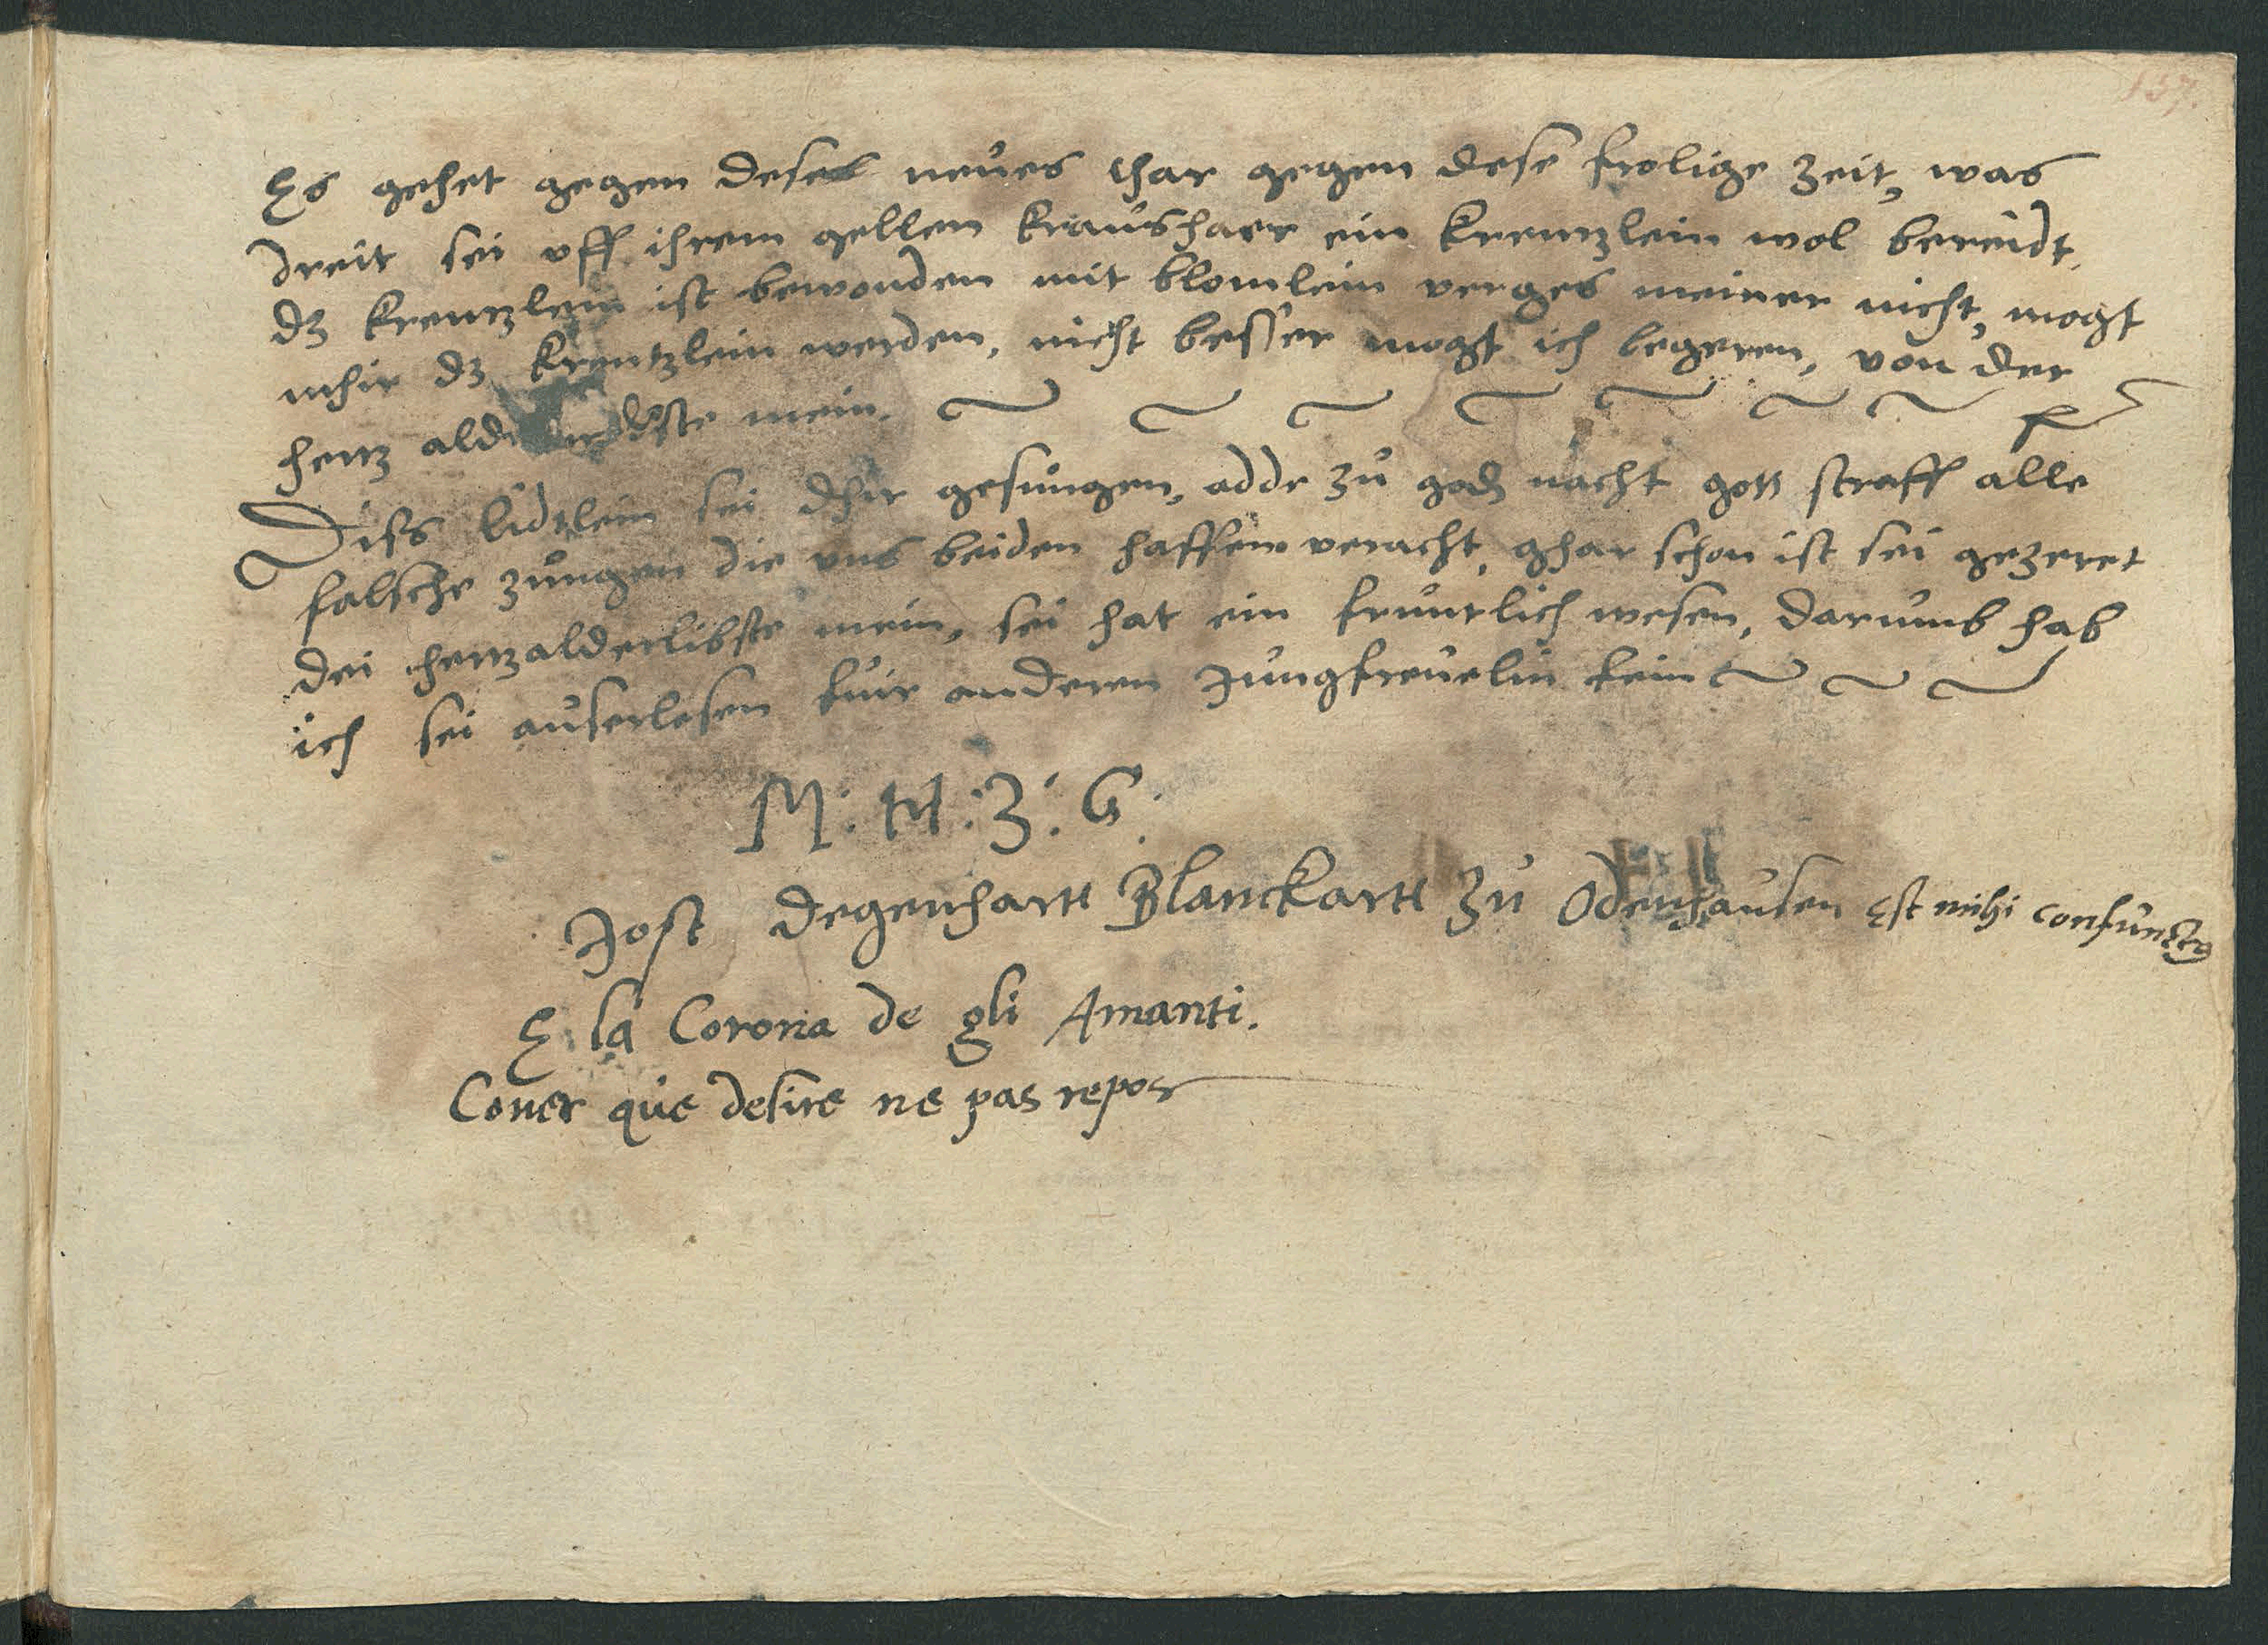 137.
Es gehet gegen deses neues ihar gegen dese frolige zeit, was
dreit sei uff ihrem gellen kraushaer ein krenzlein wol bereidt,
dz krenzlein ist bewonden mit blomlein verges meiner nicht, mogt
mhir dz krentzlein werden, nicht besser mogt ich begeren, von der
hertz mein.
Diss lidtlein sei dhir gesungen, adde zu nacht gott straff alle
falsche zungen die uns beiden haffen veracht, ghar schon ist sei gezeret
dei hertzalderlibste mein, sei hat ein fruntlich wesen, darumb hab
ich sei auserlesen fuir anderen Jungfreuelin fein
M : W : Z : G :
Jost Degenhartt Blanckartt zu Odenhausen Est mihi
E la Corona de gli Amanti.
Couer que desire ne pas repos